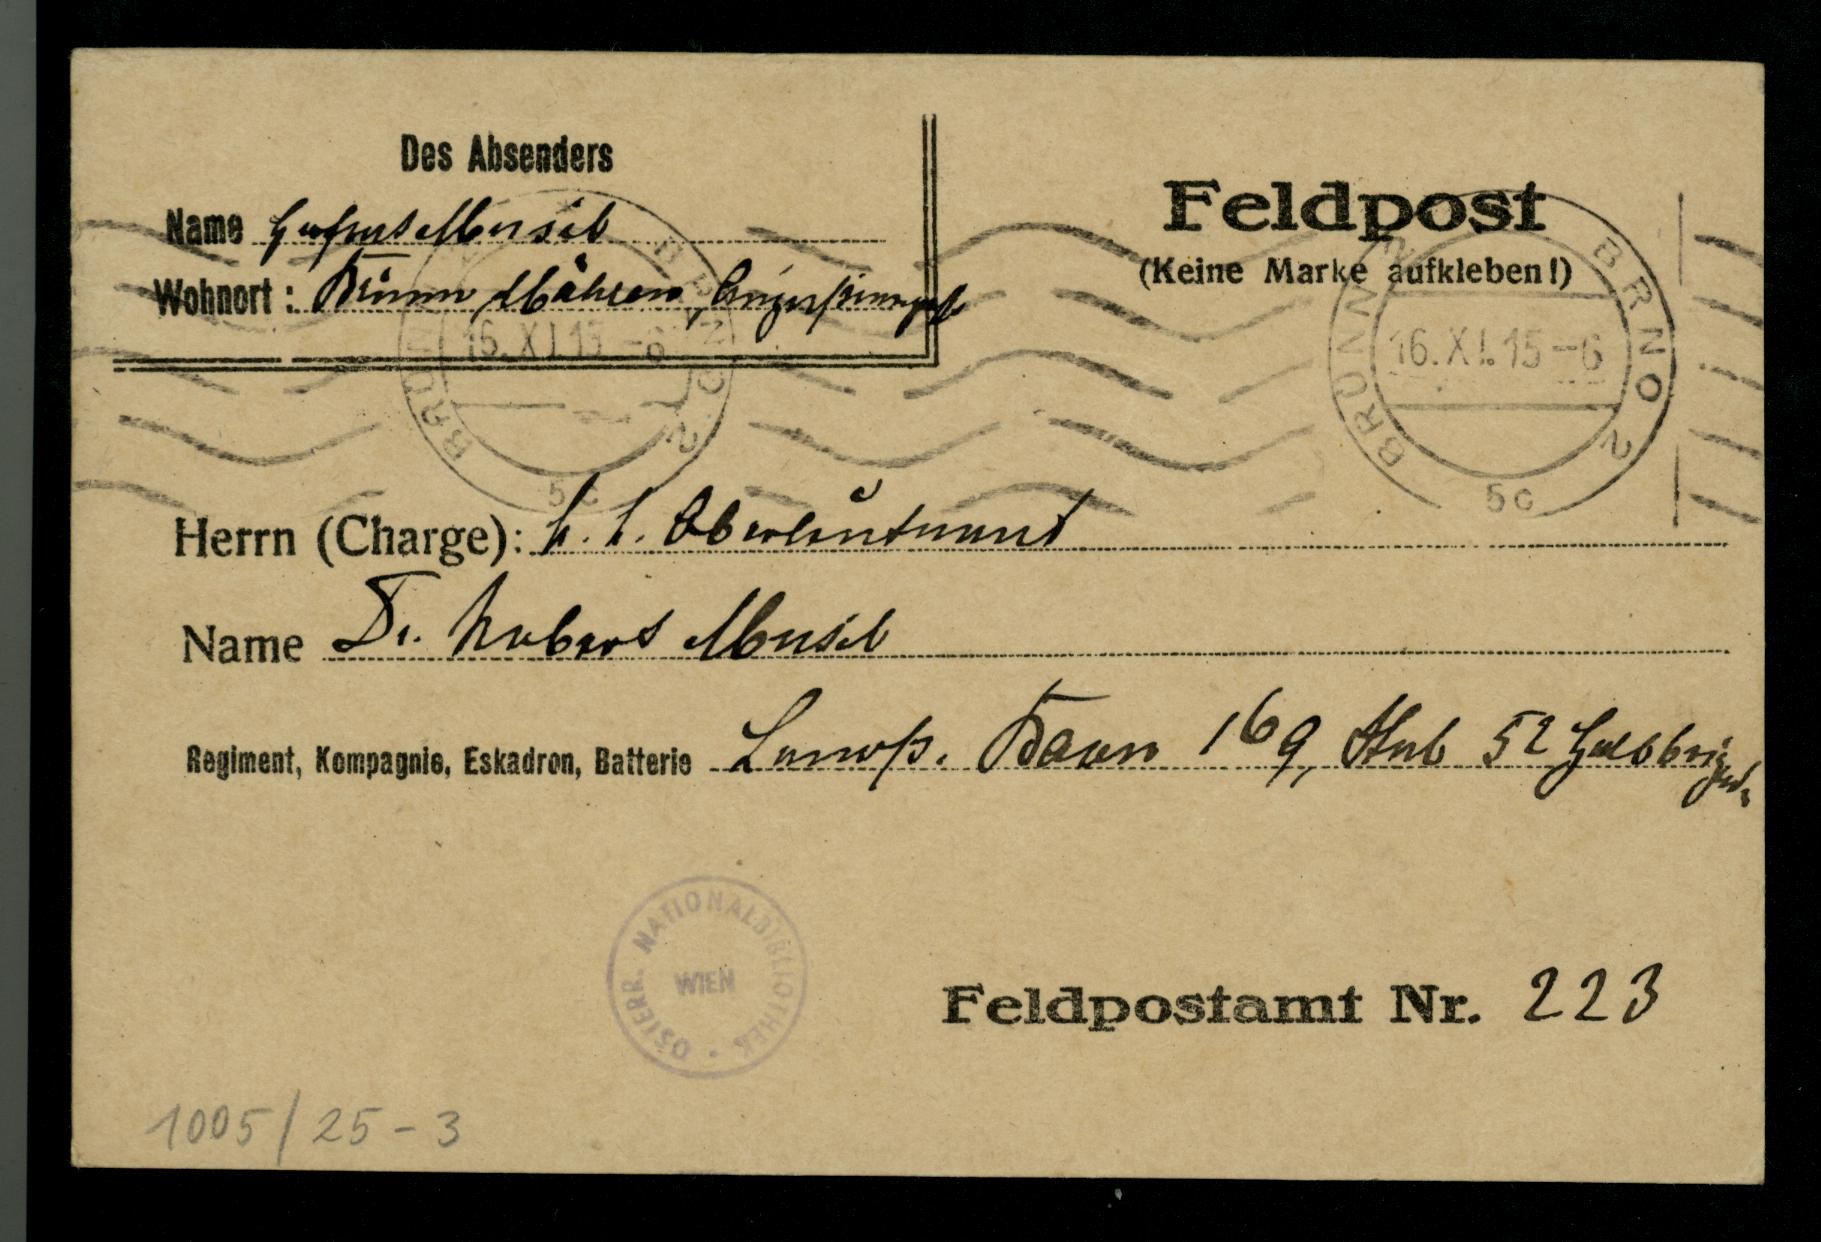 Des Absenders
Name Hofrat Musil
Wohnort: Brünn Mähren,
Feldpost
(Keine Marke aufkleben!)
BRÜNN BRNO 2
16.XI.15-6
5c
BRÜNN BRNO 2
16.XI.15-6
5c
Herrn (Charge): k. k. Oberleutnant
Name Dr. Robert Musil
Regiment, Kompagnie, Eskadron, Batterie Landsß. Baon 169, Stab 52 Halbbrigade.
ÖSTERR. NATIONALBIBLIOTHEK
WIEN
Feldpostamt Nr. 223
1005/25-3